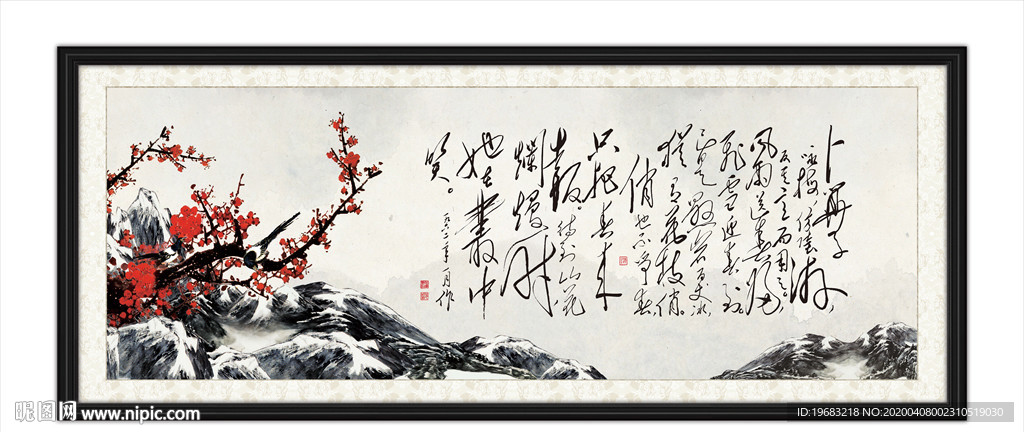 卜算子
咏梅 读陆游
反其意而用之。
风雨送春归
飞雪迎春到。
已是悬崖百丈冰,
犹有花枝俏。
俏也不争春
只把春来
报。待到山花
烂漫时
她在叢中
笑。
昵图网 www.nipic.com
ID:19683218 NO:20200408002310519030